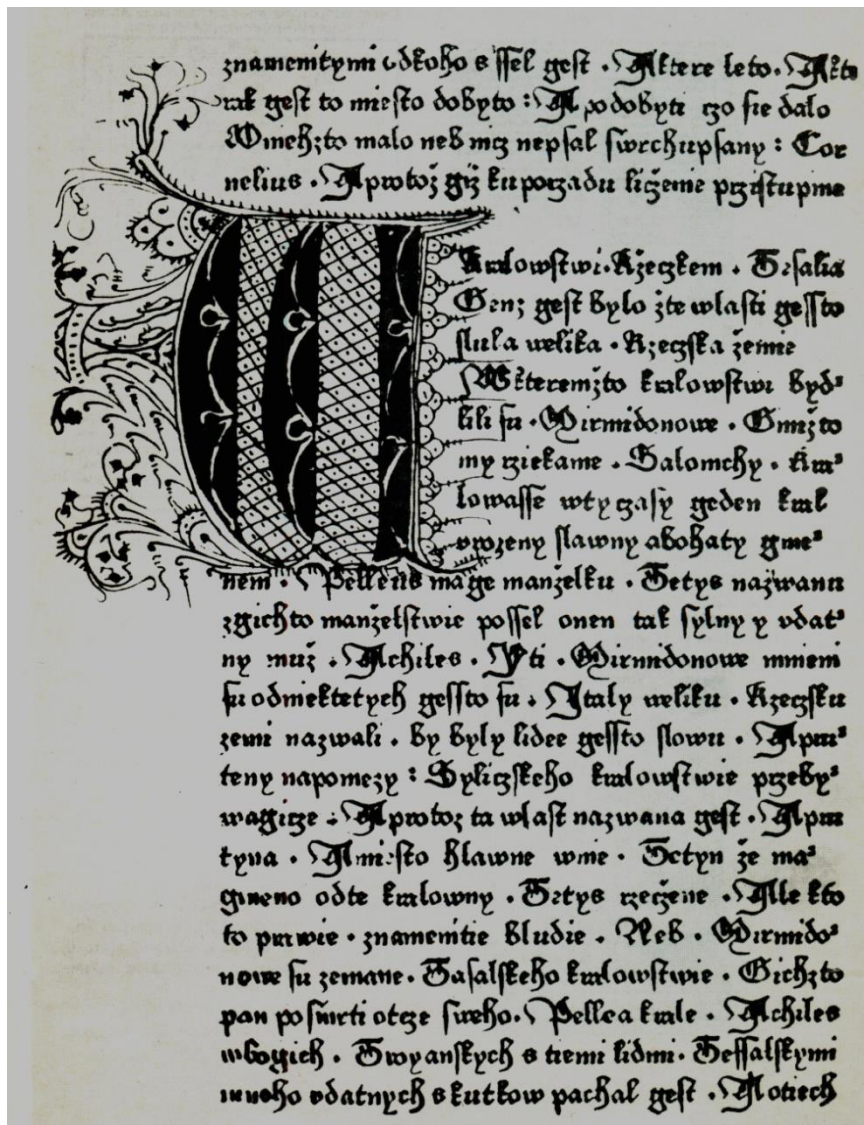 znamenitymi odkoho s ssel gest · Aktere leto · Akte
rak gest to miesto dobyto : A po dobyti czo sie dalo
Omehzto malo neb nicz nepsal swrchupsany : Cor
nelius · Aprotoż giż kuporzadu liczenie przistupme
Kralowstwi · Rzeczkem · Tesalia
Genz gest bylo żte wlasti gessto
slula welika · Rzeczska żemie
Wkteremżto kralowstwi byd⸗
lili su · Mirmidonowe · Gimiżto
my rziekame · Salomchy · Kra⸗
lowasse wtyczasy geden kral
vrozeny slawny abohaty gme⸗
nem · Pelleus mage manżelku · Tetys nazwanu
zgichto manżelstwie possel onen tak sylny y vdat⸗
ny muż · Achiles · Yti · Mirmidonowe mnieni
su odniektetych gessto su · Italy weliku · Rzeczsku
zemi nazwali · by byly lidee gessto slowu · Apru⸗
teny napomezy : Syliczskeho kralowstwie przeby⸗
wagicze · Aprotoz ta wlast nazwana gest · Apru
tyna · Amiesto hlawne wnie · Tetyn że ma⸗
gmeno odte kralowny · Tetys rzeczene · Alle kto
to prawie · znamenitie bludie · Neb · Mirmido⸗
nowe su zemane · Tasalskeho kralowstwie · Gichzto
pan po smrti otcze sweho · Pellea krale · Achiles
wbogich · Troyanskych s tiemi lidmi · Tessalskymi
mnoho vdatnych skutkow pachal gest · Aotiech